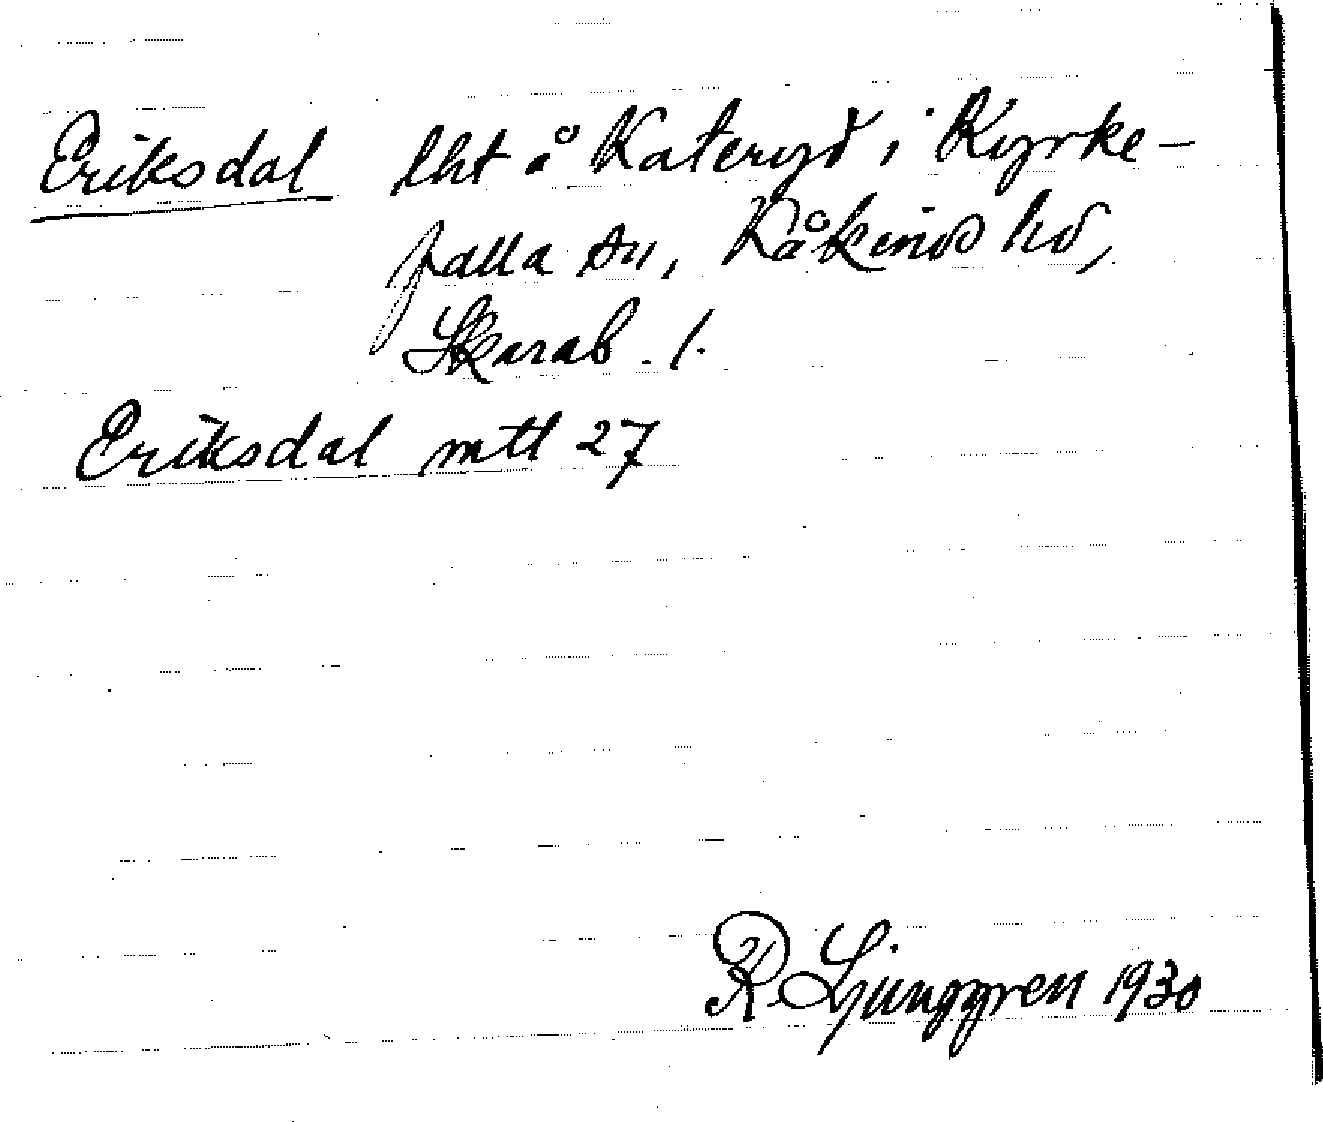 Eriksdal lht å Kateryd i Kyrke-
falla sn, Kåkinds hd,
Skarab. l.
Eriksdal mtl 27
R. Ljunggren 1930